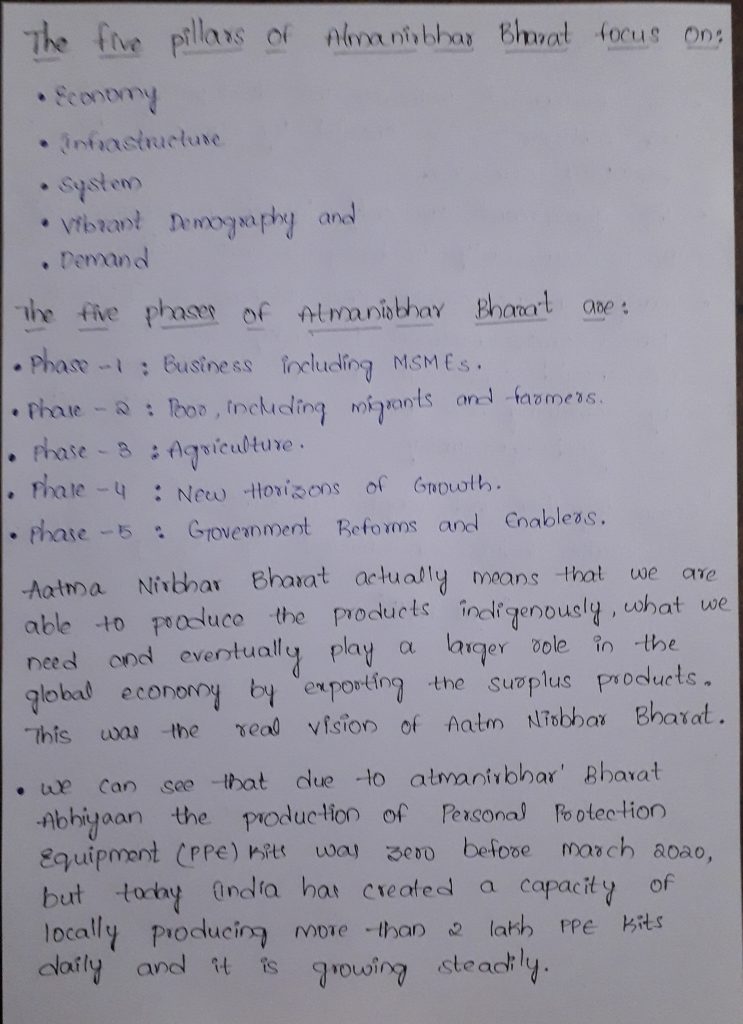 The five pillars of Atmanirbhar Bharat focus on:
• Economy
• Infrastructure
• System
• Vibrant Demography and
• Demand
The five phases of Atmanirbhar Bharat are:
• Phase - 1 : Business including MSMEs.
• Phase - 2 : Poor, including migrants and farmers.
• Phase - 3 : Agriculture.
• Phase - 4 : New Horizons of Growth.
• Phase - 5 : Government Reforms and Enablers.
Aatma Nirbhar Bharat actually means that we are
able to produce the products indigenously, what we
need and eventually play a larger role in the
global economy by exporting the surplus products.
This was the real vision of Aatm Nirbhar Bharat.
• we can see that due to atmanirbhar' Bharat
Abhiyaan the production of Personal Protection
Equipment (PPE) Kits was zero before march 2020,
but today India has created a capacity of
locally producing more than 2 lakh PPE Kits
daily and it is growing steadily.